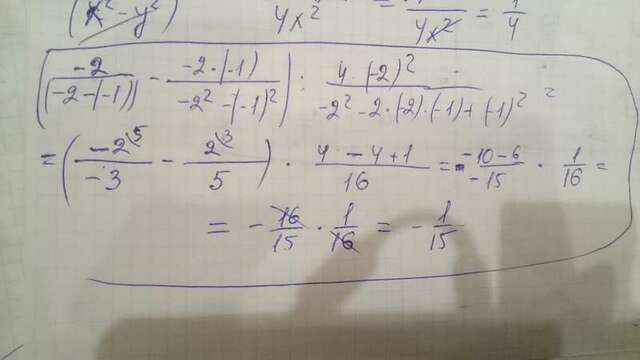 (x² - y²) 4x² = 4x² = 1/4
(-2/(-2-(-1)) - -2·(-1)/-2²-(-1)²) : 4·(-2)²/-2²-2·(-2)·(-1)+(-1)² =
= (-2\5/-3 - 2\3/5) · 4-4+1/16 = -10-6/-15 · 1/16 =
= - 16/15 · 1/16 = - 1/15